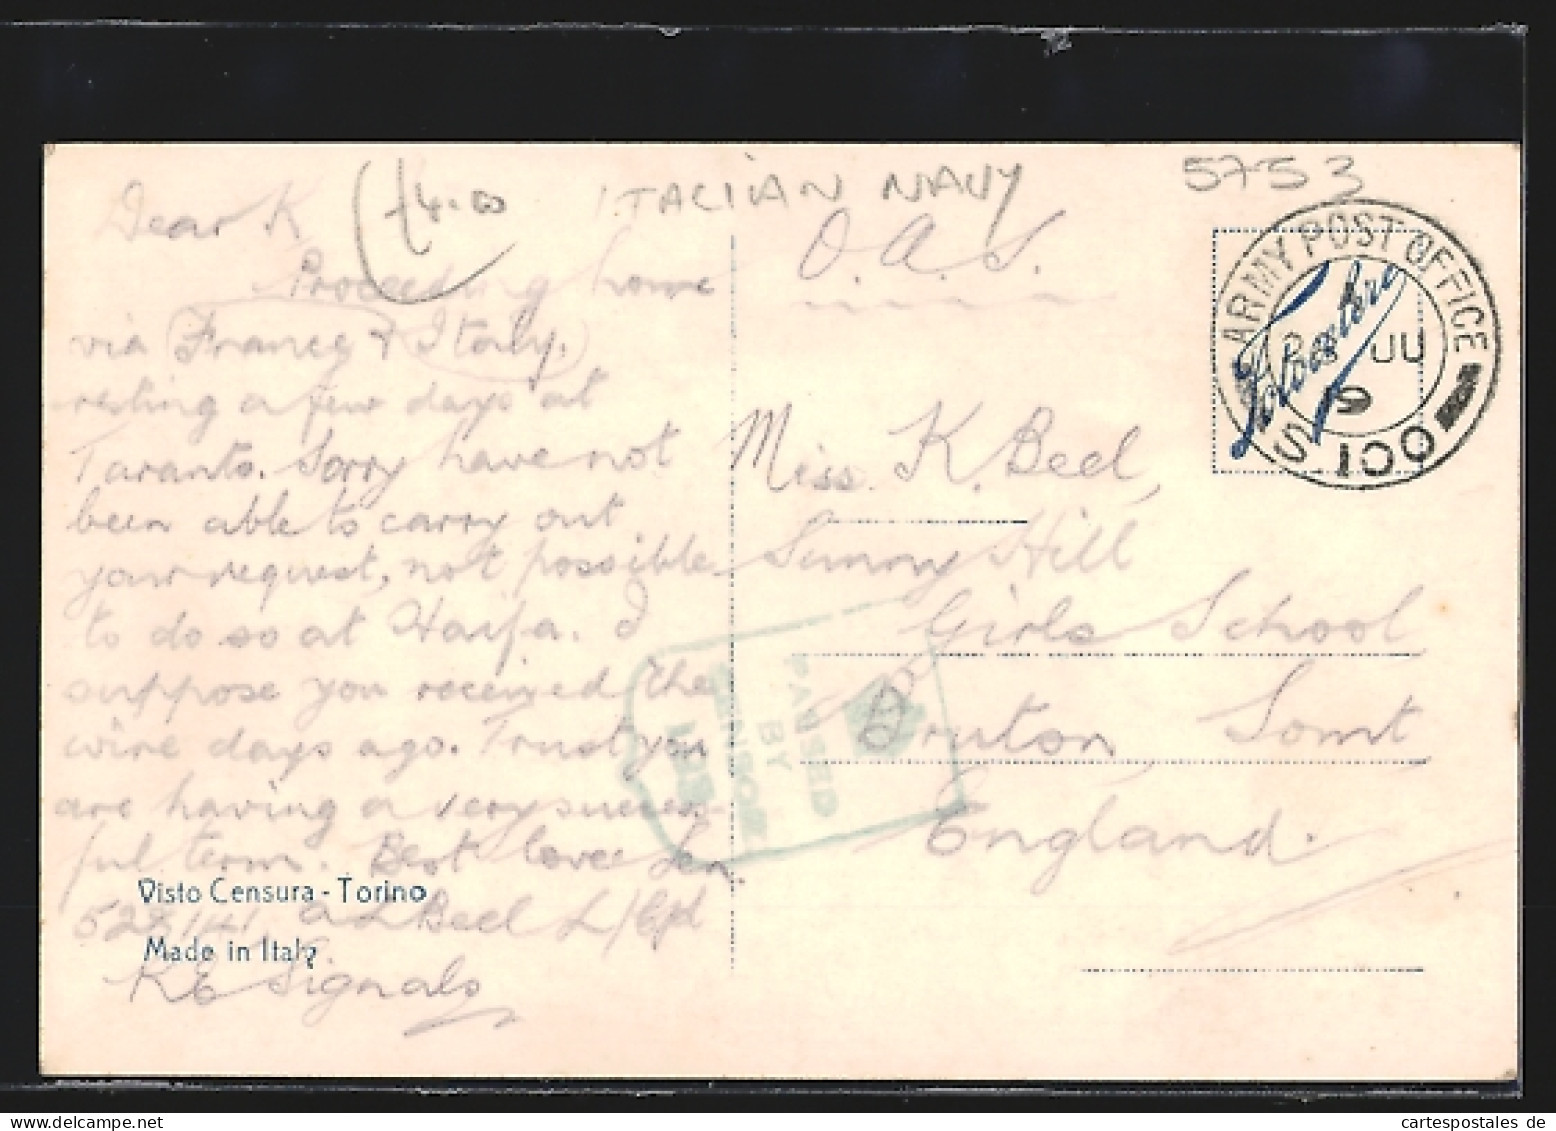 £4.00
ITALIAN NAVY
5753
Dear K
Proceeding home
via France & Italy.
resting a few days at
Taranto. Sorry have not
been able to carry out
your request, not possible
to do so at Haifa. I
suppose you received the
wire days ago. Trust you
are having a very success-
ful term. Best love Len.
Visto Censura - Torino
L Beel L/Cpl
Made in Italy
Signals
O.A.S.
Miss K. Beel,
Sunny Hill
Girls School
Bruton Somt
England.
ARMY POST OFFICE
JU
S. 100
PASSED
BY
CENSOR
cartespostales de